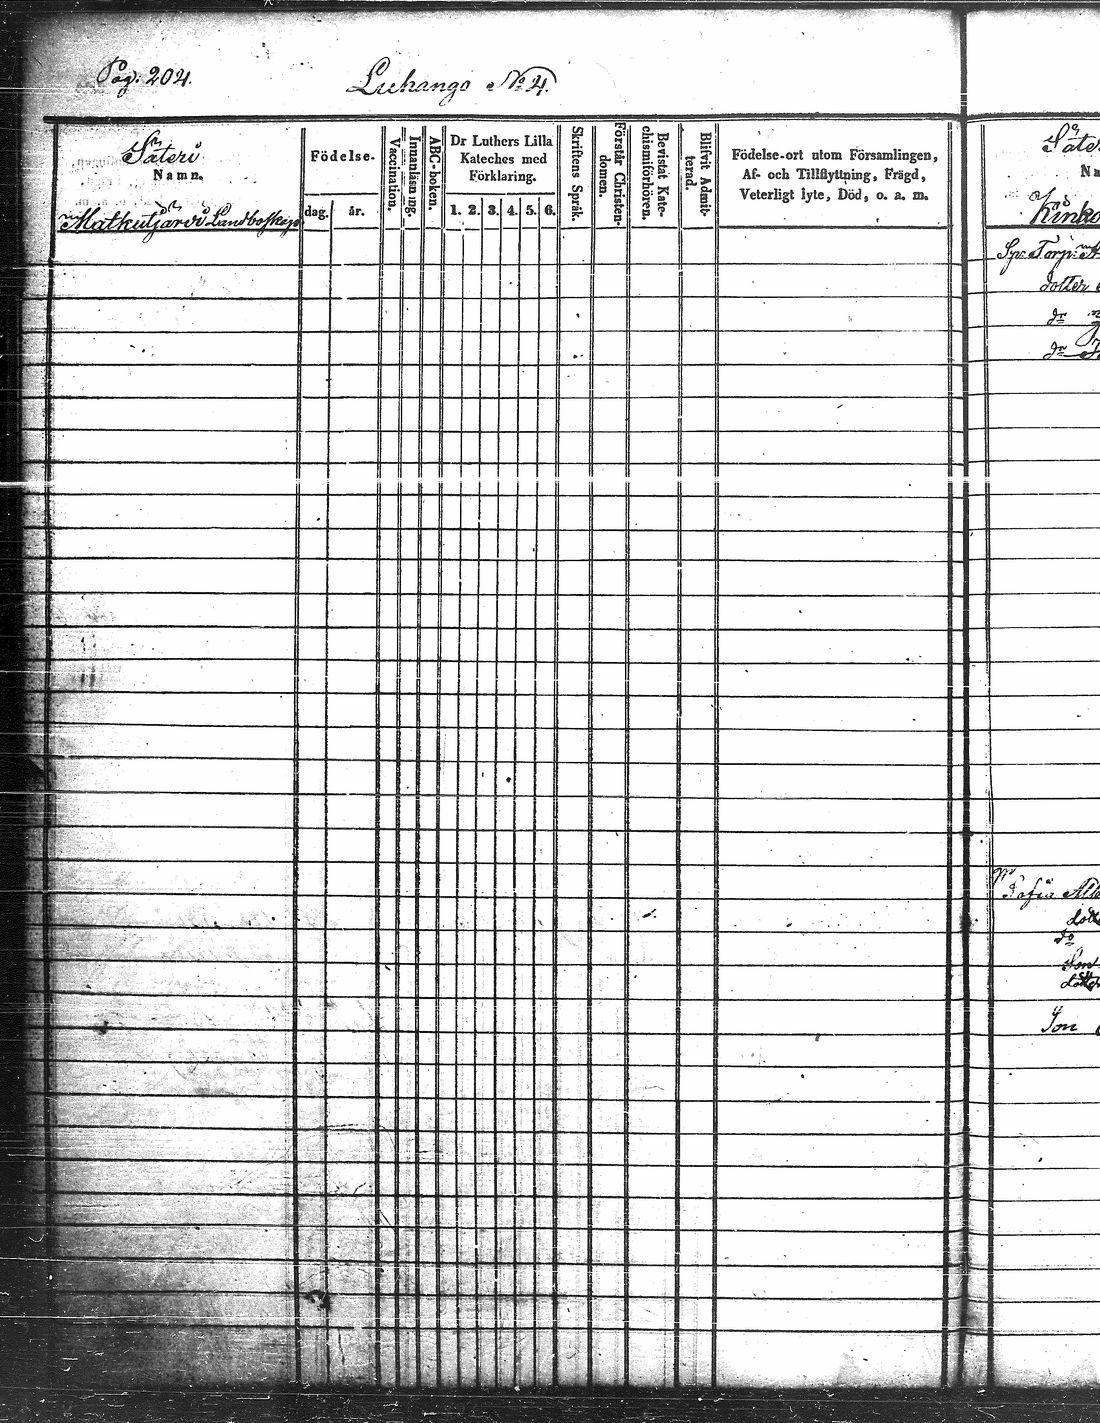 Pag. 204.
Luhango No 4.
Säteri
Namn.
Matkutjärvi Landbolägenh
Födelse-
dag.
år.
Vaccination.
Innanläsning.
ABC-boken.
Dr Luthers Lilla
Kateches med
Förklaring.
1. 2. 3. 4. 5. 6.
Skriftens Språk.
Förstår Christen-
domen.
Bevistat Kate-
chismiförhören.
Blifvit Admit-
terad.
Födelse-ort utom Församlingen,
Af- och Tillflyttning, Frägd,
Veterligt lyte, Död, o. a. m.
Säter
Na
Kinko
Sp. Torp.
dotter
dr
dr
Sofia Al
dott
do
Son
dotter
Son